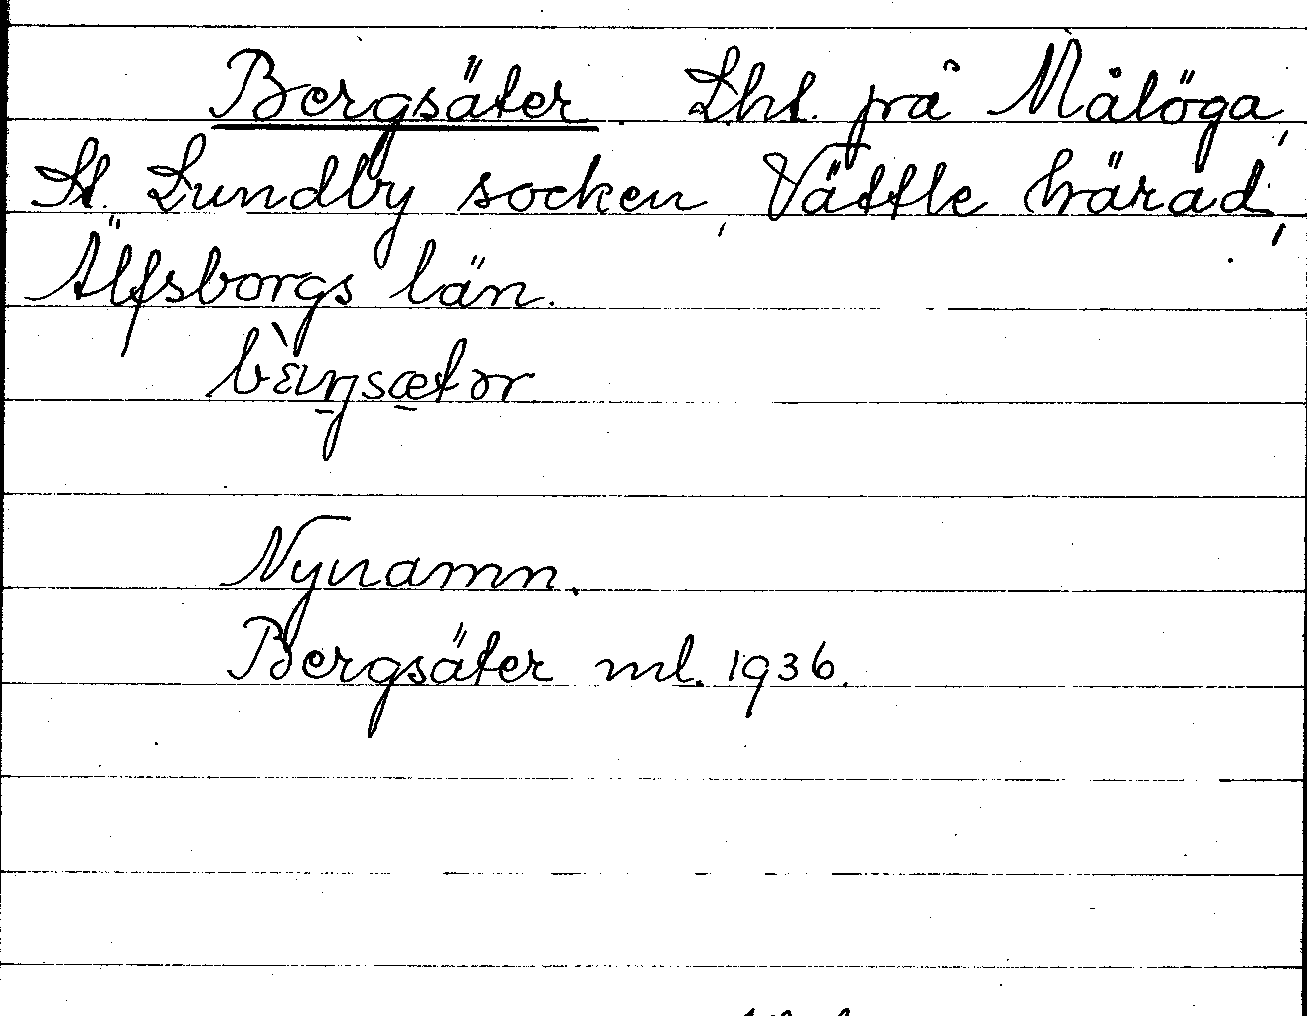 Bergsäter. Lht. på Målöga,
St. Lundby socken, Vättle härad,
Älfsborgs län.
Nynamn.
Bergsäter ml. 1936.